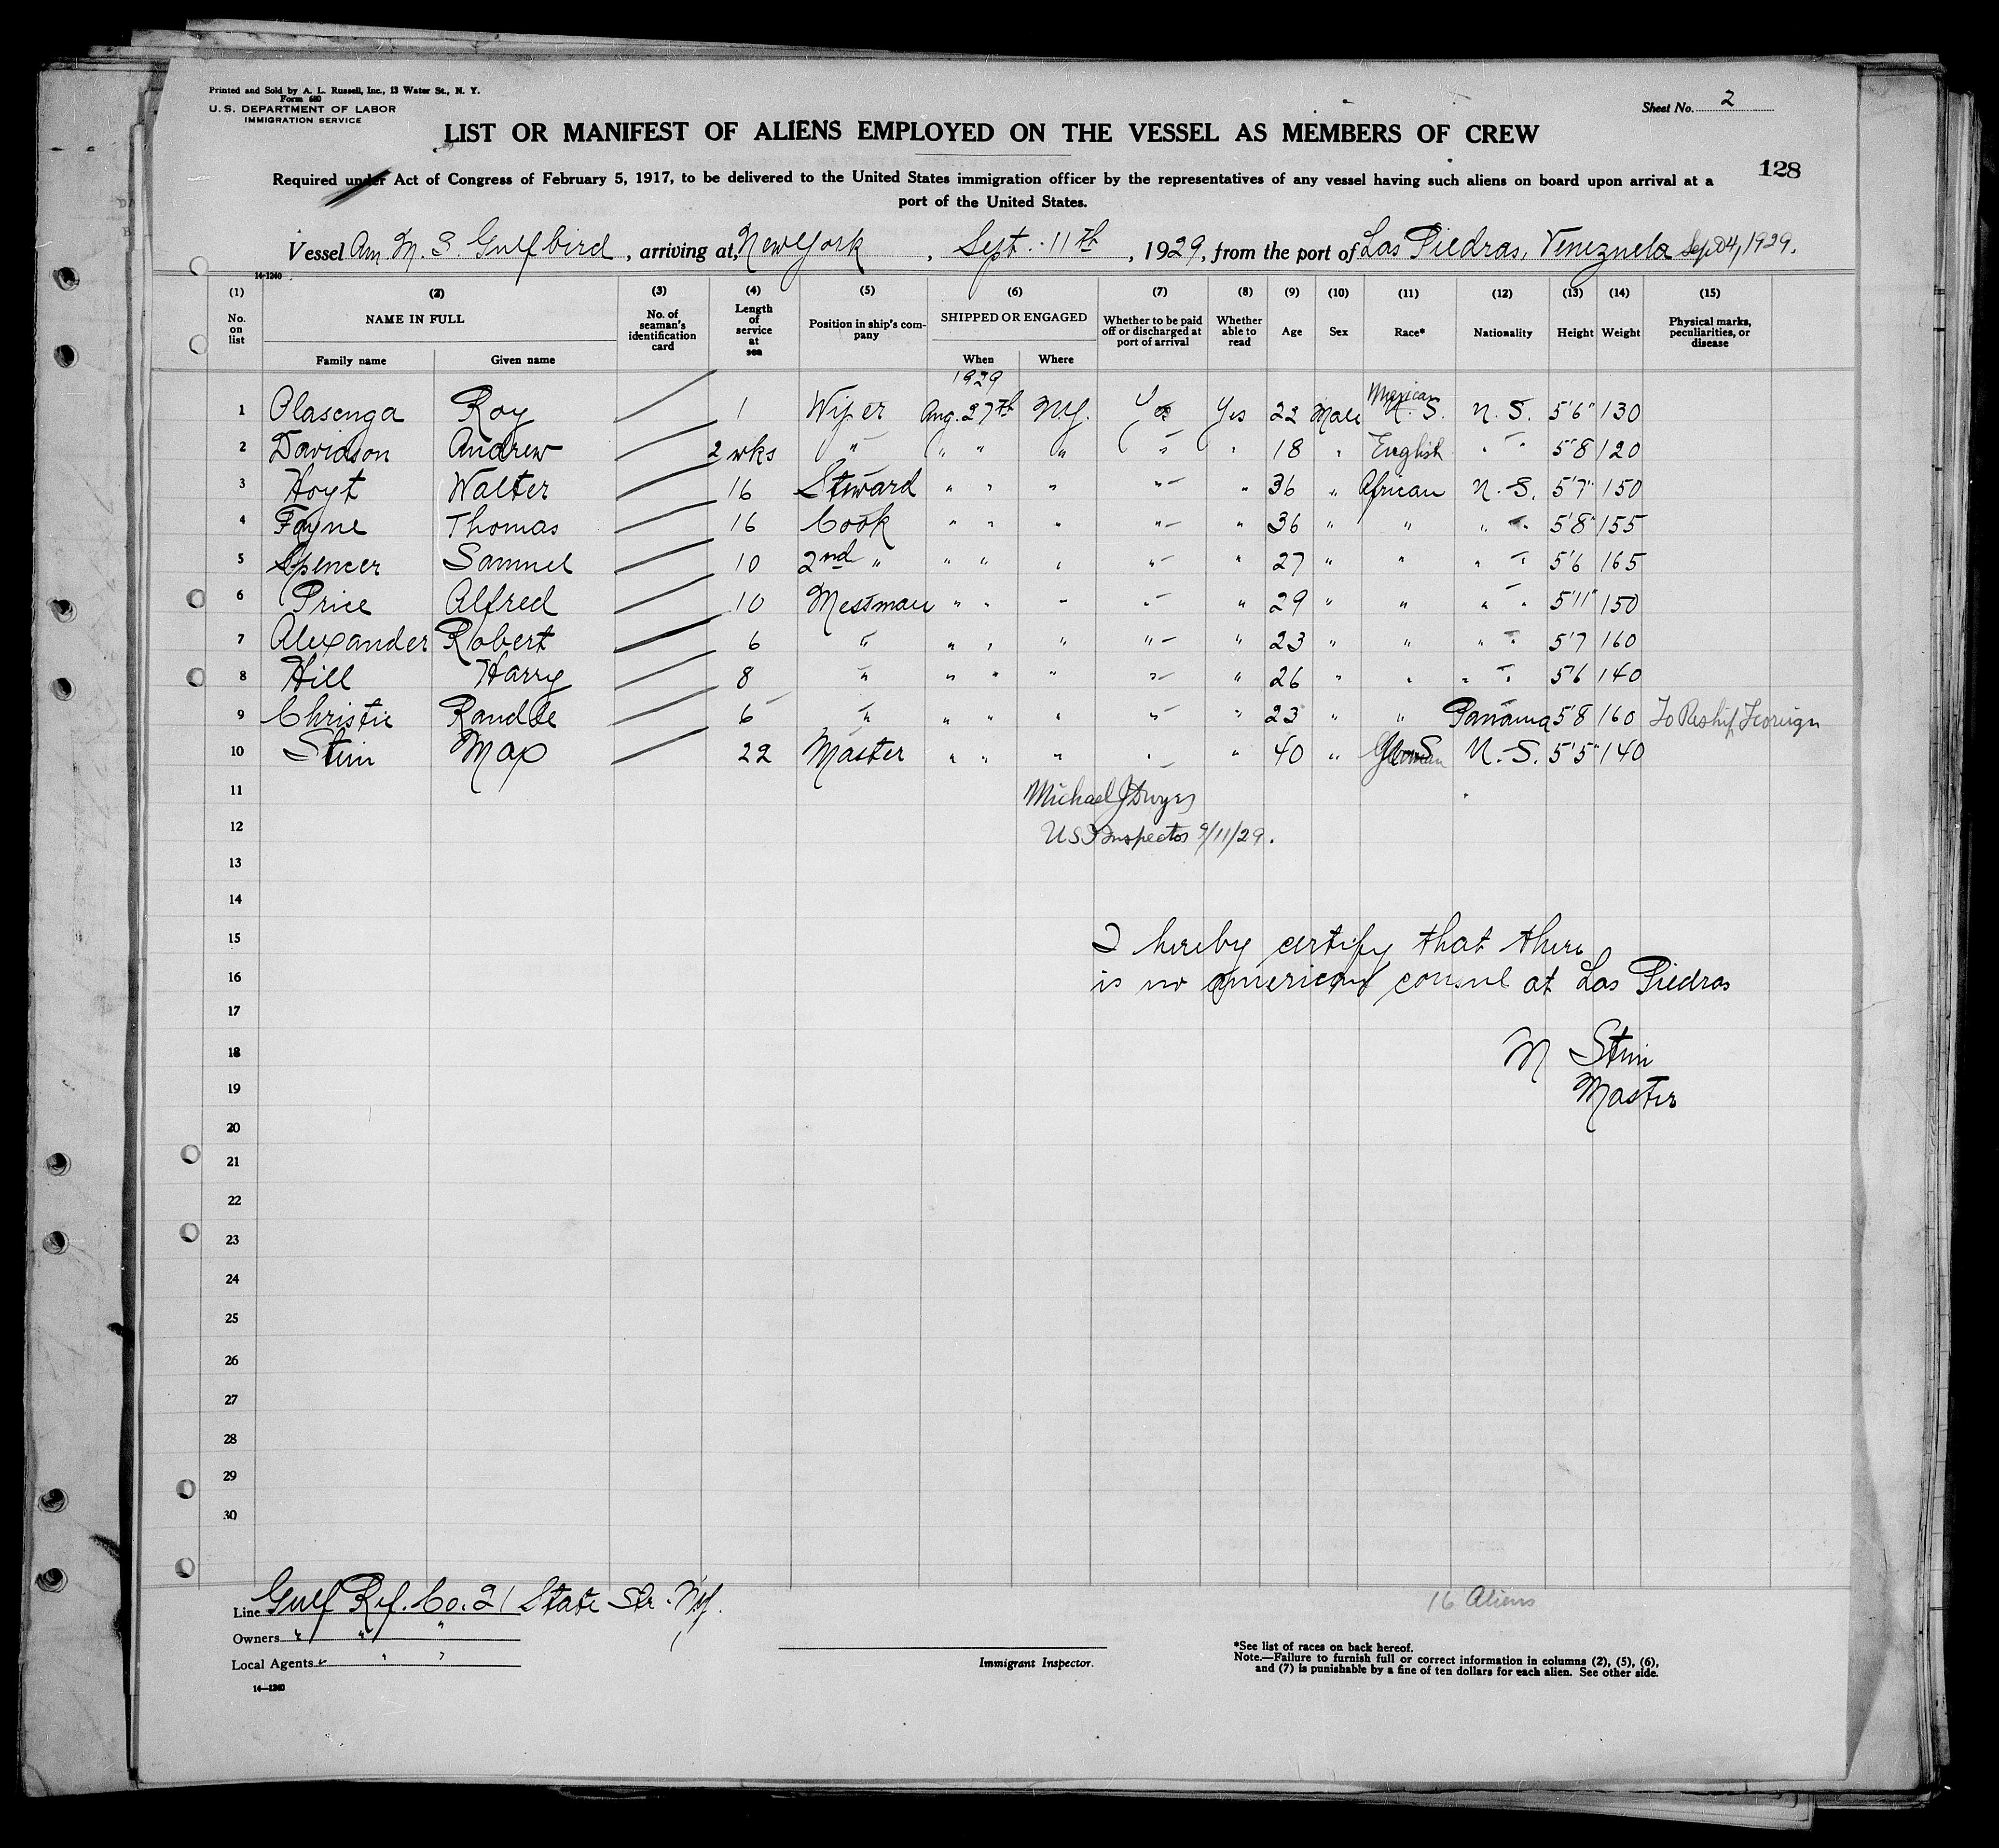 Printed and Sold by A. L. Russell, Inc., 13 Water St., N. Y.
Form 680
U. S. DEPARTMENT OF LABOR
IMMIGRATION SERVICE
Sheet No. 2
LIST OR MANIFEST OF ALIENS EMPLOYED ON THE VESSEL AS MEMBERS OF CREW
128
Required under Act of Congress of February 5, 1917, to be delivered to the United States immigration officer by the representatives of any vessel having such aliens on board upon arrival at a
port of the United States.
Vessel Am M. S. Gulfbird, arriving at, New York, Sept. 11th, 1929, from the port of Las Piedras, Venezuela Sep 04, 1929.
14-1240
(1) (2) (3) (4) (5) (6) (7) (8) (9) (10) (11) (12) (13) (14) (15)
No. on list NAME IN FULL Family name Given name No. of seaman's identification card Length of service at sea Position in ship's company SHIPPED OR ENGAGED When Where Whether to be paid off or discharged at port of arrival Whether able to read Age Sex Race* Nationality Height Weight Physical marks, peculiarities, or disease
1929
Mexican
1 Olasenga Roy 1 Wiper Aug. 27th N.Y. Yes Yes 22 Male U. S. 5'6" 130
2 Davidson Andrew 2 wks " " " " " " 18 " English " " 5'8 120
3 Hoyt Walter 16 Steward " " " " " 36 " African U. S. 5'7" 150
4 Fayne Thomas 16 Cook " " " " " 36 " " " " 5'8" 155
5 Spencer Samuel 10 2nd " " " " " " 27 " " " " 5'6 165
6 Price Alfred 10 Messman " " " " " 29 " " " " 5'11" 150
7 Alexander Robert 6 " " " " " " 23 " " " " 5'7 160
8 Hill Harry 8 " " " " " " 26 " " " " 5'6 140
9 Christie Randle 6 " " " " " " 23 " " Panama 5'8 160 To Reship Foreign
10 Stein Max 22 Master " " " " " 40 " German U. S. 5'5" 140
11 Michael J Dwyer
12 US Inspector 9/11/29.
13
14
15 I hereby certify that there
16 is no american consul at Las Piedras
17
18 M Stein
19 Master
20
21
22
23
24
25
26
27
28
29
30
Line Gulf Ref. Co. 21 State Str. N.Y.
16 Aliens
Owners " " "
Local Agents " " "
14-1240
Immigrant Inspector.
*See list of races on back hereof.
Note.—Failure to furnish full or correct information in columns (2), (5), (6),
and (7) is punishable by a fine of ten dollars for each alien. See other side.